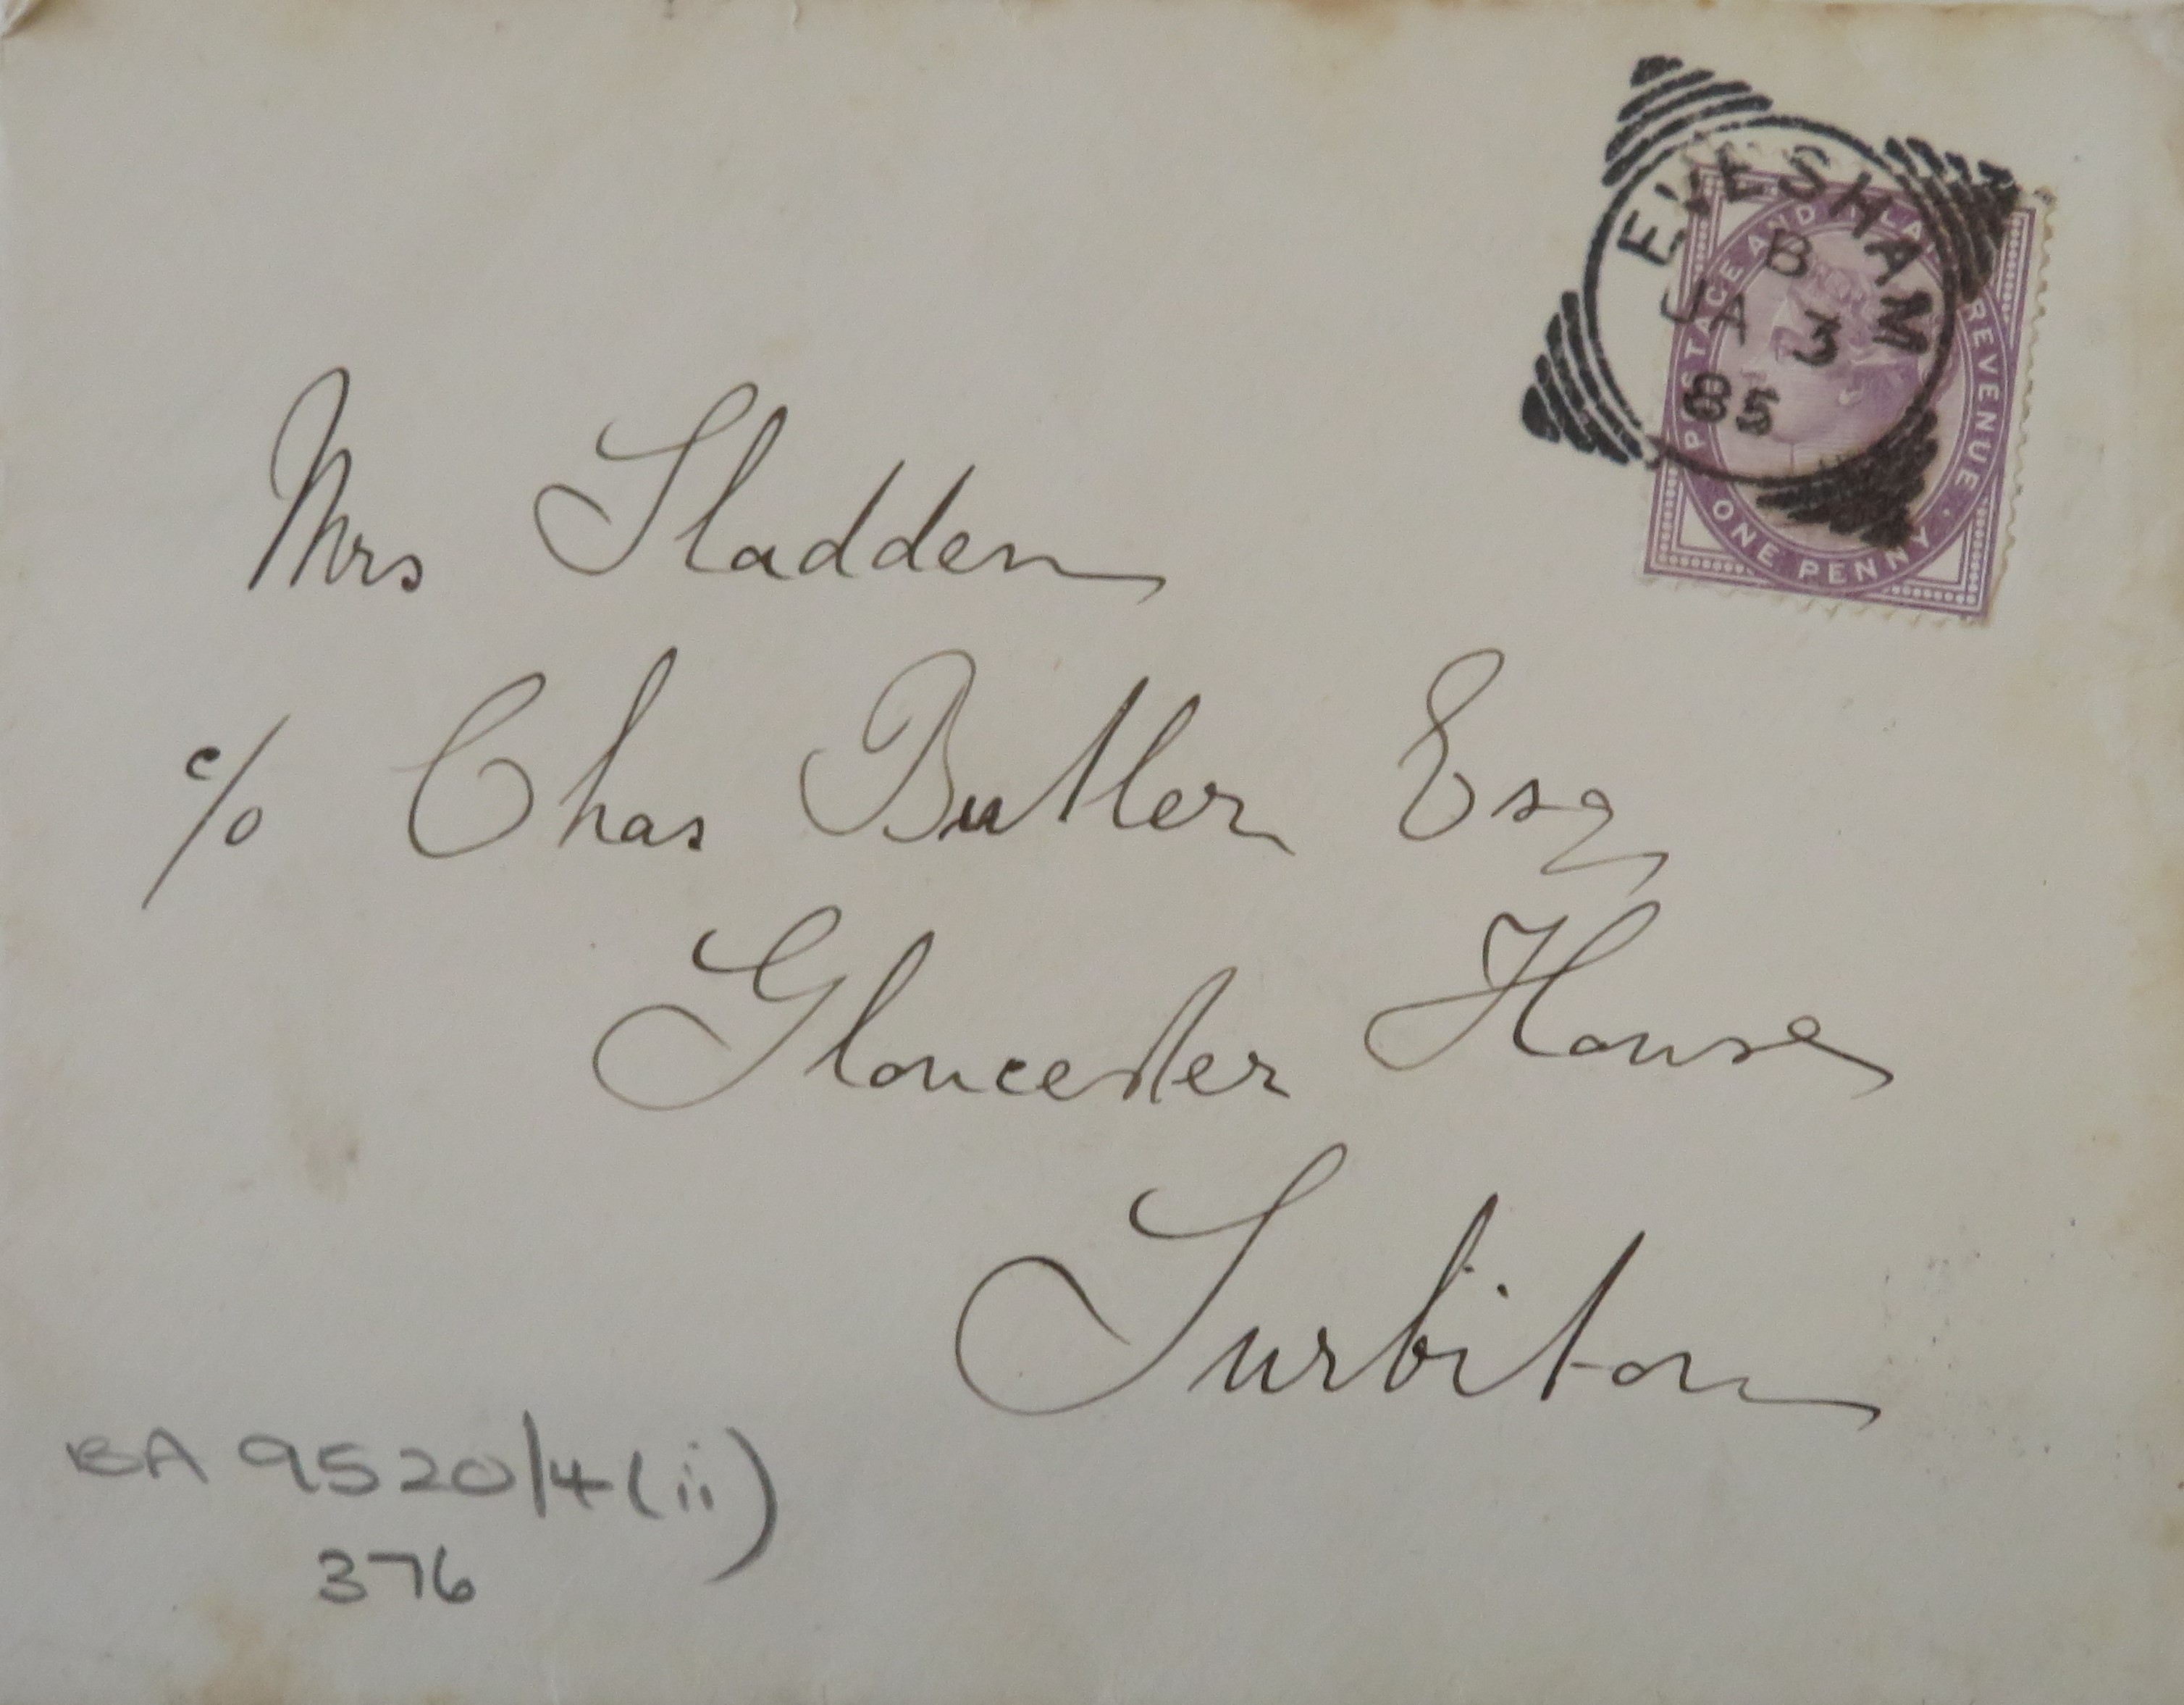 EVESHAM
B
JA 3
85
POSTAGE AND INLAND REVENUE.
ONE PENNY.
Mrs Sladden
c/o Chas Butler Esq
Gloucester House
Surbiton
BA 9520/4(ii)
376